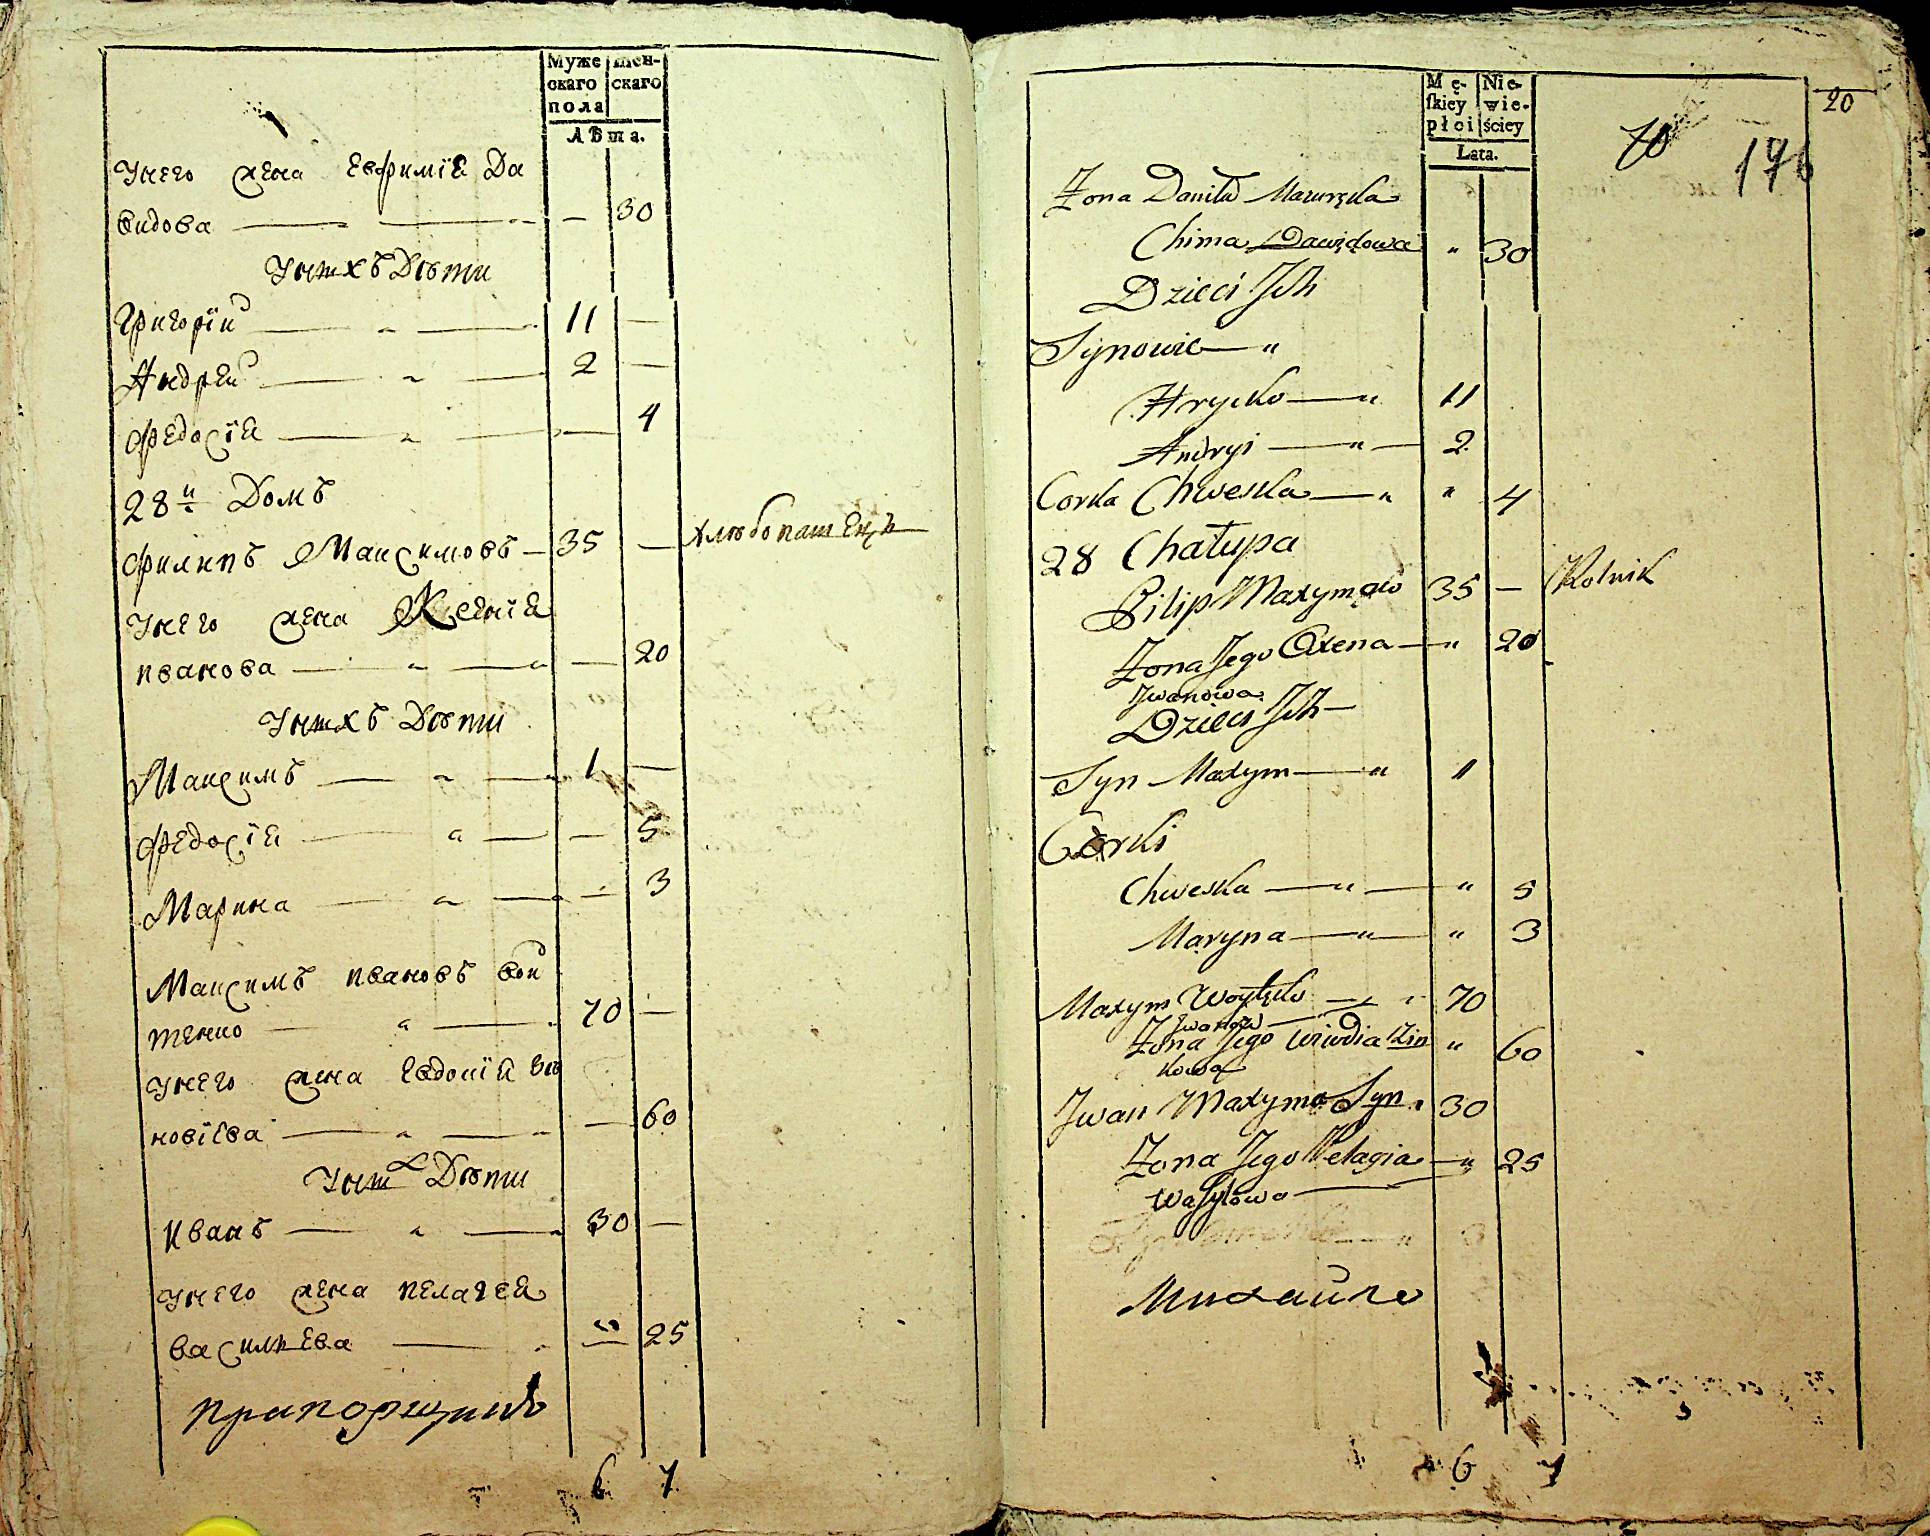 Муже
скаго
пола
Жен-
скаго
Лѣта.
Унего жена Евфимїя Да
видова — — — 30
Унихъ Дѣти
Григорїй — „ — 11 —
Андрей — „ — 2 —
Федосїя — „ — — 4
28й Домъ
Филипъ Максимовъ — 35 — хлѣбопашецъ
Унего жена Ксенїя
иванова — „ — — 20
Унихъ Дѣти
Максимъ — „ — 1 —
Федосїя — „ — — 5
Марина — „ — — 3
Максимъ ивановъ вой
тенко — „ — 70 —
Унего жена Евдокїя Зѣ
новїева — „ — — 60
Уних Дѣти
Иванъ — „ — 30 —
Унего жена пелагея
васильева — „ „ 25
прапорщикъ
6 7
Mę-
skiey
płci
Nie-
wie-
ściey
Lata.
20
176
Żona Daniła Mazuręka
Chima Dawidowa „ 30
Dzieci Jch
Synowie — „
Hryćko — „ 11
Andryi — „ — 2
Corka Chweska — „ „ 4
28 Chałupa
Pilip Maxymow 35 — Rolnik
Żona Jego Oxena — „ 20
Jwanowa
Dzieci Jch —
Syn Maxym — „ 1
Córki
Chweska — „ — „ 5
Maryna — „ — „ 3
Maxym Woytęko — „ 70
Jwanow —
Żona Jego Wiwdia Zin „ 60
kowa
Jwan Maxyma Syn „ 30
Żona Jego Pelagia — „ 25
Wasylowa —
Михайло
6 7